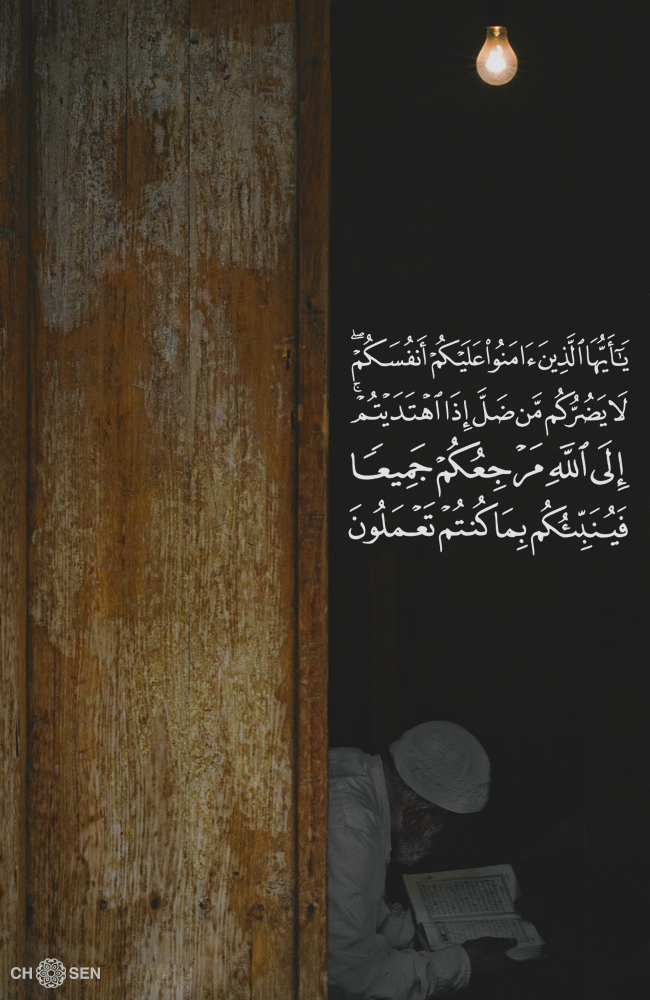 يَـٰٓأَيُّهَا ٱلَّذِينَ ءَامَنُوا۟ عَلَيْكُمْ أَنفُسَكُمْ ۖ
لَا يَضُرُّكُم مَّن ضَلَّ إِذَا ٱهْتَدَيْتُمْ ۚ
إِلَى ٱللَّهِ مَرْجِعُكُمْ جَمِيعًا
فَيُنَبِّئُكُم بِمَا كُنتُمْ تَعْمَلُونَ
CH SEN